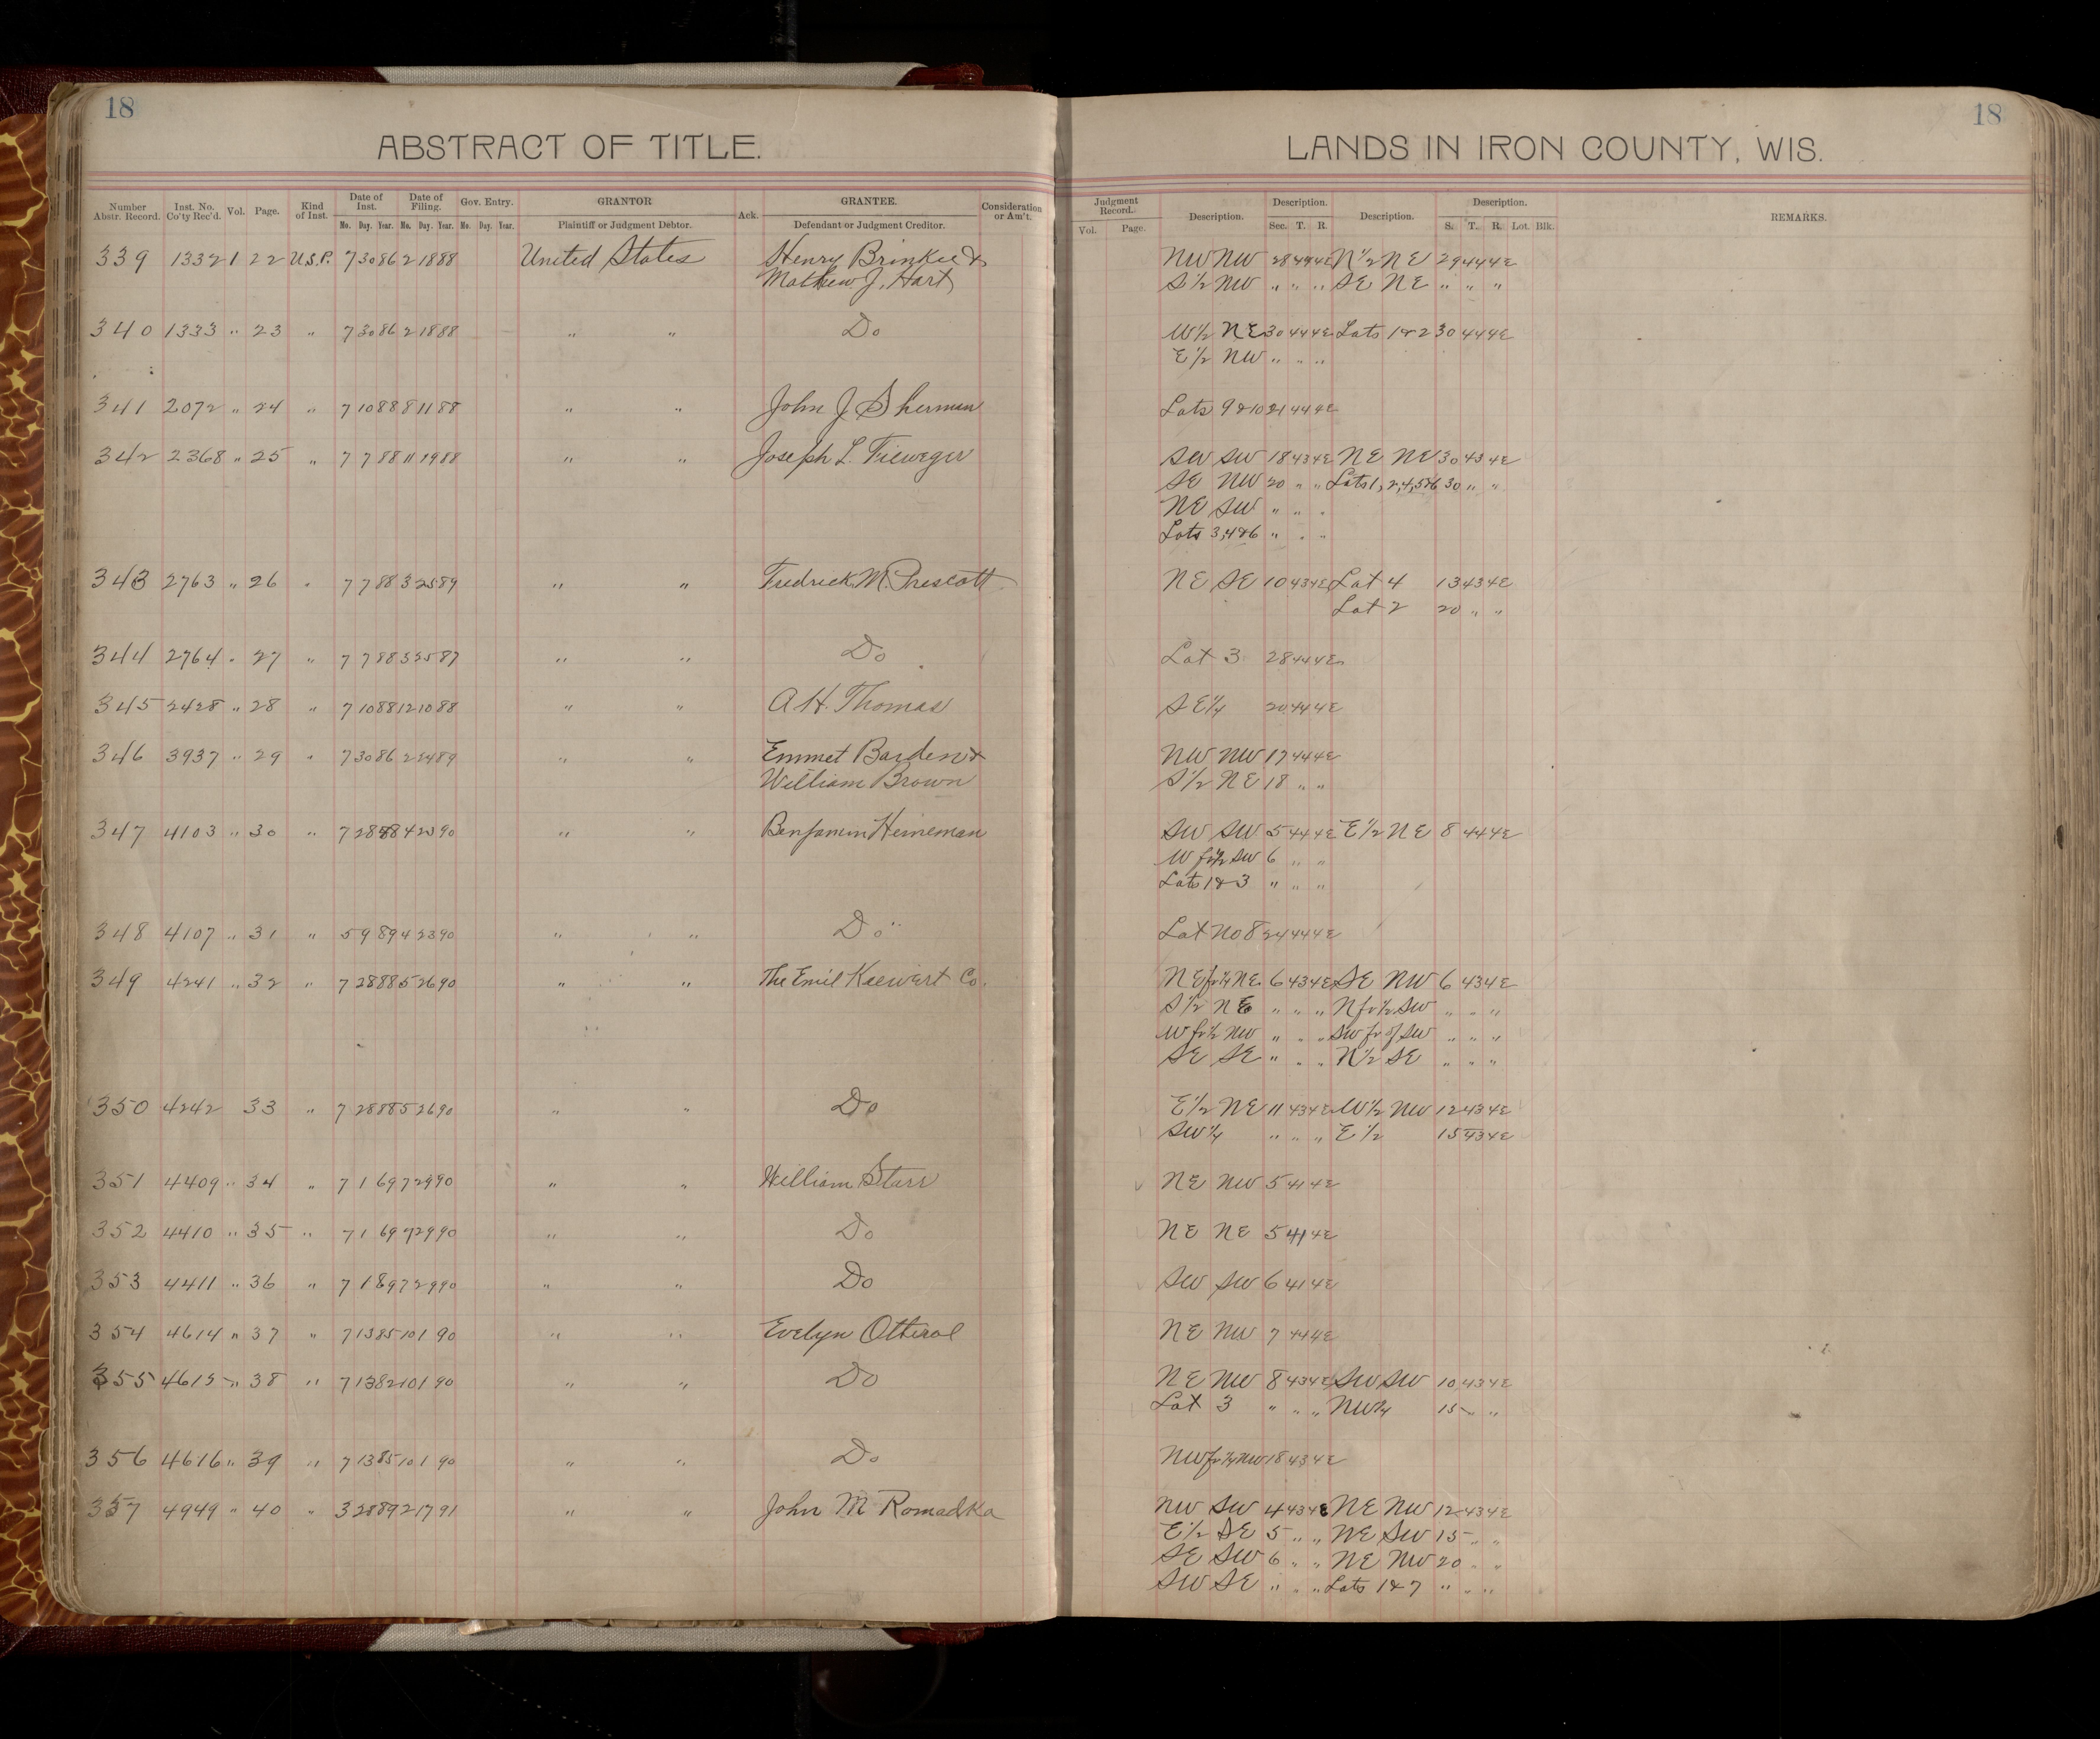 18
18
ABSTRACT OF TITLE.
LANDS IN IRON COUNTY, WIS.
Number Abstr. Record. Inst. No. Co'ty Rec'd. Vol. Page. Kind of Inst. Date of Inst. Date of Filing. Gov. Entry. GRANTOR Ack. GRANTEE. Consideration or Am't. Judgment Record. Description. Description. Description. Description. REMARKS.
Mo. Day. Year. Mo. Day. Year. Mo. Day. Year. Plaintiff or Judgment Debtor. Defendant or Judgment Creditor. Vol. Page. Sec. T. R. S. T. R. Lot. Blk.
339 1332 1 22 U.S.P. 7 30 86 2 18 88 United States Henry Brinkee & NW NW 28 44 4E N 1/2 NE 29 44 4E
Mathew J. Hart S 1/2 NW " " " SE NE " " "
340 1333 " 23 " 7 30 86 2 18 88 " " Do W 1/2 NE 30 44 4E Lots 1 & 2 30 44 4E
E 1/2 NW " " "
341 2072 " 24 " 7 10 88 8 11 88 " " John J Sherman Lots 9 & 10 21 44 4E
342 2368 " 25 " 7 7 88 11 19 88 " " Joseph L. Fieweger SW SW 18 43 4E NE NE 30 43 4E
SE NW 20 " " Lots 1, 2, 4, 5 & 6 30 " "
NE SW " " "
Lots 3, 4 & 6 " " "
343 2763 " 26 " 7 7 88 3 25 89 " " Fredrick M. Prescott NE SE 10 43 4E Lot 4 13 43 4E
Lot 2 20 " "
344 2764 " 27 " 7 7 88 3 25 87 " " Do Lot 3 28 44 4E
345 2428 " 28 " 7 10 88 12 10 88 " " A H. Thomas SE 1/4 20 44 4E
346 3937 " 29 " 7 30 86 2 24 89 " " Emmet Barden & NW NW 17 44 4E
William Brown S 1/2 NE 18 " "
347 4103 " 30 " 7 28 88 4 23 90 " " Benjamin Heineman SW SW 5 44 4E E 1/2 NE 8 44 4E
W fr 1/2 SW 6 " "
Lots 1 & 3 " " "
348 4107 " 31 " 5 9 89 4 23 90 " " Do Lot No 8 24 44 4E
349 4241 " 32 " 7 28 88 5 26 90 " " The Emil Keewert Co. NE fr 1/4 NE. 6 43 4E SE NW 6 43 4E
S 1/2 NE " " " N fr 1/2 SW " " "
W fr 1/2 NW " " " SW fr of SW " " "
SE SE " " " N 1/2 SE " " "
350 4242 33 " 7 28 88 5 26 90 " " Do E 1/2 NE 11 43 4E W 1/2 NW 12 43 4E
SW 1/4 " " " E 1/2 15 43 4E
351 4409 " 34 " 7 1 69 7 29 90 " " William Starr NE NW 5 41 4E
352 4410 " 35 " 7 1 69 7 29 90 " " Do NE NE 5 41 4E
353 4411 " 36 " 7 1 69 7 29 90 " " Do SW SW 6 41 4E
354 4614 " 37 " 7 13 85 10 1 90 " " Evelyn Otteral NE NW 7 44 4E
355 4615 " 38 " 7 13 82 10 1 90 " " Do NE NW 8 43 4E SW SW 10 43 4E
Lot 3 " " " NW 1/4 15 " "
356 4616 " 39 " 7 13 85 10 1 90 " " Do NW fr 1/4 NW 18 43 4E
357 4949 " 40 " 3 28 89 2 17 91 " " John M Romadka NW SW 4 43 4E NE NW 12 43 4E
E 1/2 SE 5 " " NE SW 15 " "
SE SW 6 " " NE NW 20 " "
SW SE " " " Lots 1 & 7 " " "